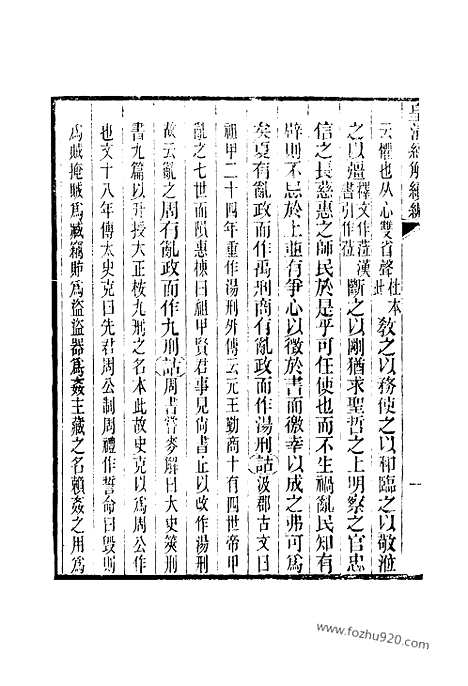 皇清經解續編
云懼也从心雙省聲杜本此教之以務使之以和臨之以敬涖
之以彊釋文作涖漢書引作莅斷之以剛猶求聖哲之上明察之官忠
信之長慈惠之師民於是乎可任使也而不生禍亂民知有
辟則不忌於上並有爭心以徵於書而徼幸以成之弗可爲
矣夏有亂政而作禹刑商有亂政而作湯刑詁汲郡古文曰
祖甲二十四年重作湯刑外傳云元王勤商十有四世帝甲
亂之七世而隕惠棟曰祖甲賢君事見尚書正以改作湯刑
故云亂之周有亂政而作九刑詁周書嘗麥解曰大史筴刑
書九篇以升授大正按九刑之名本此故史克以爲周公作
也文十八年傳太史克曰先君周公制周禮作誓命曰毀則
爲賊掩賊爲臧竊賄爲盜盜器爲姦主藏之名賴姦之用爲
一
www.fozhu920.com